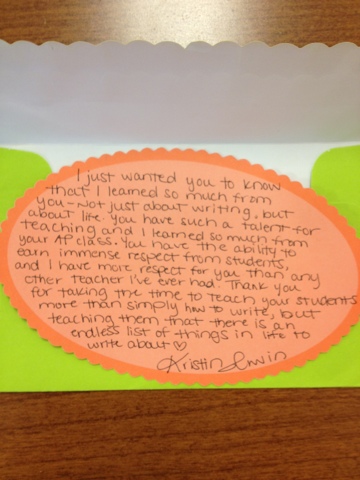 I just wanted you to know
that I learned so much from
you - not just about writing, but
about life. You have such a talent for
teaching and I learned so much from
your AP class. You have the ability to
earn immense respect from students,
and I have more respect for you than any
other teacher I've ever had. Thank you
for taking the time to teach your students
more than simply how to write, but
teaching them that there is an
endless list of things in life to
write about ♡
Kristin Irwin